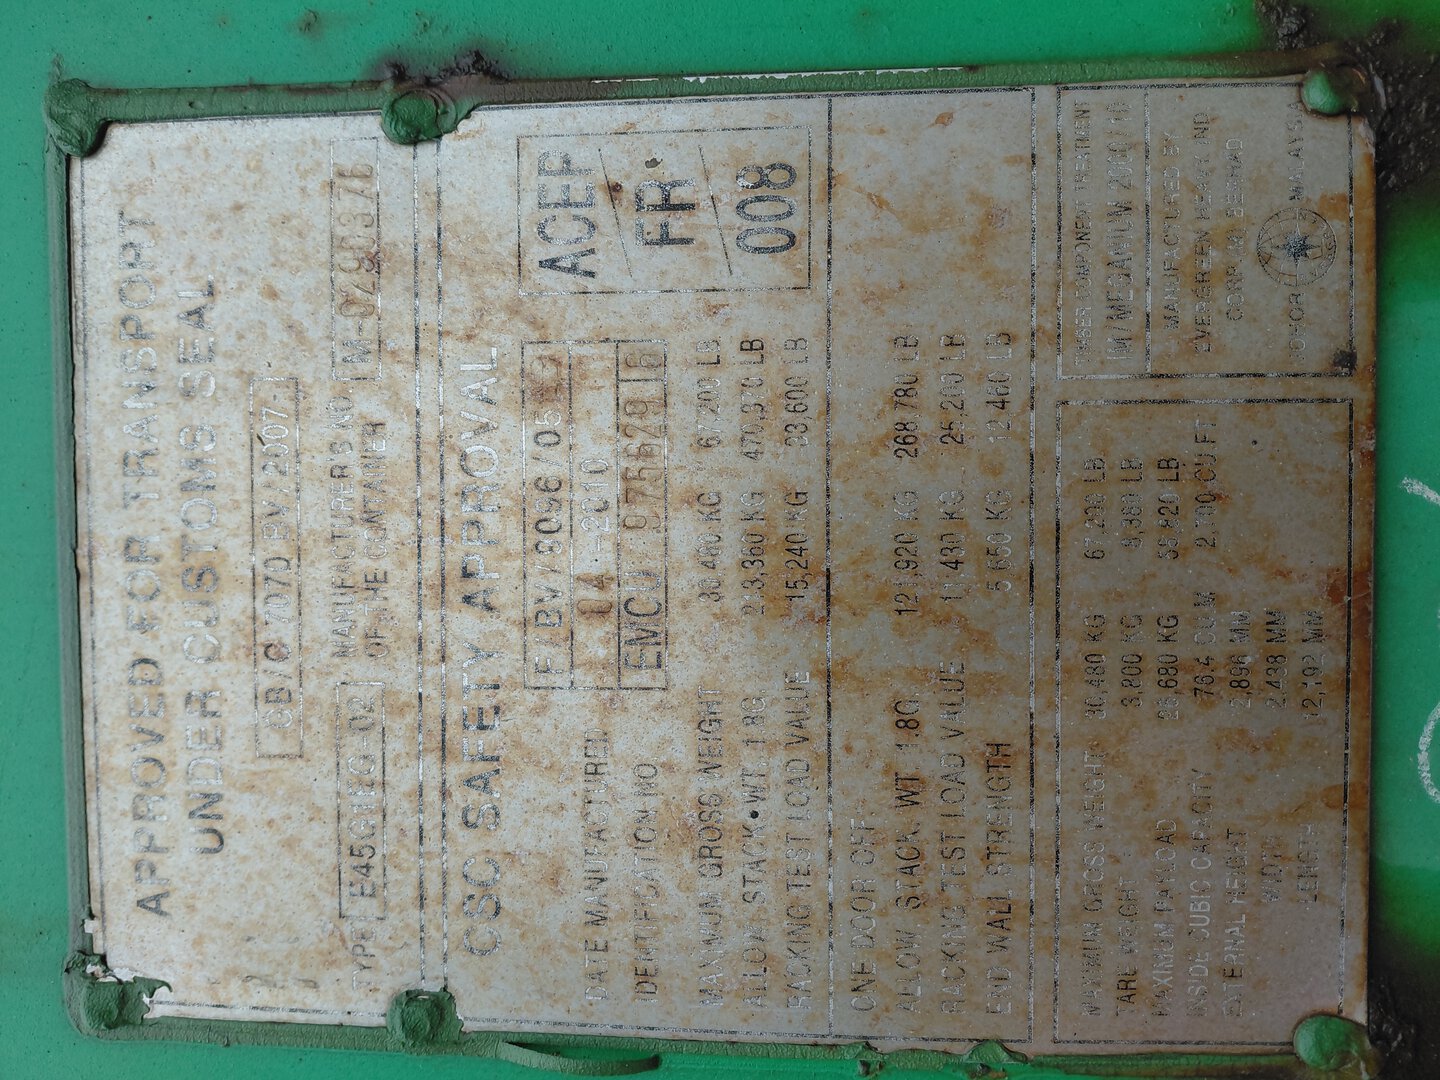 APPROVED FOR TRANSPORT
UNDER CUSTOMS SEAL
GB/C 7070 BV/2007
TYPE E45G1EG-02 MANUFACTURER'S NO. OF THE CONTAINER
CSC SAFETY APPROVAL
F/BV/8096/05
ACEP
FR
008
DATE MANUFACTURED 04-2010
IDENTIFICATION NO EMCU
MAXIMUM GROSS WEIGHT 30,480 KG 67,200 LB
ALLOW. STACK. WT. 1.8G KG LB
RACKING TEST LOAD VALUE 15,240 KG 33,600 LB
ONE DOOR OFF
ALLOW STACK. WT 1.8G 121,920 KG 268,780 LB
RACKING TEST LOAD VALUE 11,430 KG 25,200 LB
END WALL STRENGTH KG LB
MAXIMUM GROSS WEIGHT 30,480 KG 67,200 LB
TARE WEIGHT 3,800 KG 8,380 LB
MAXIMUM PAYLOAD 26,680 KG 58,820 LB
INSIDE CUBIC CAPACITY 76.4 CU.M 2,700 CU.FT
EXTERNAL HEIGHT 2,896 MM
WIDTH 2,438 MM
LENGTH 12,192 MM
TIMBER COMPONENT TREATMENT
MANUFACTURED BY
EVERGREEN HEAVY IND
CORP (M) BERHAD
JOHOR MALAYSIA